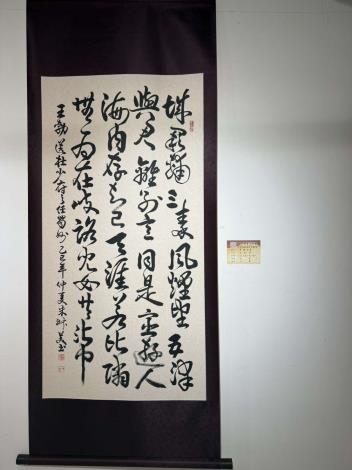 城闕輔三秦風煙望五津
與君離別意同是宦遊人
海內存知己天涯若比鄰
無為在岐路兒女共沾巾
王勃送杜少府之任蜀州乙巳年仲夏朱書